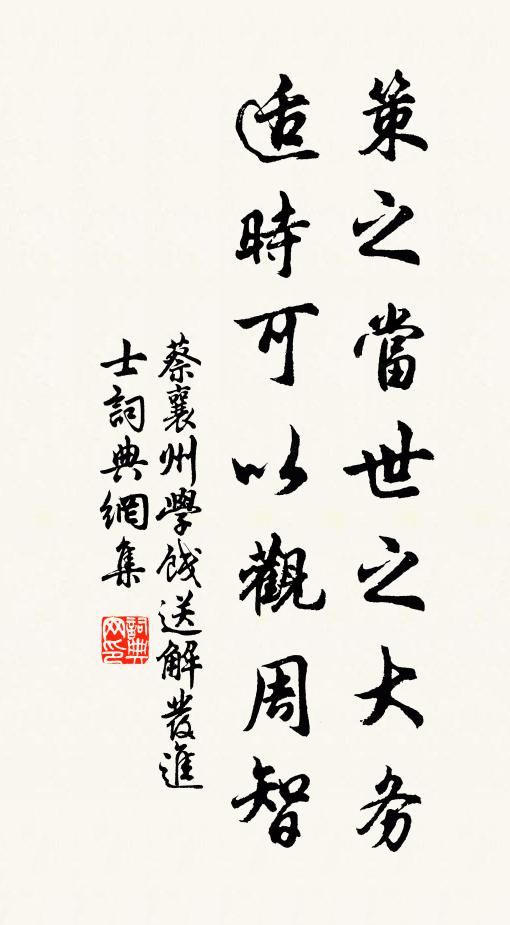 策之當世之大务
适時可以觀周智
蔡襄州學餞送解發進
士詞典網集
詞典网印